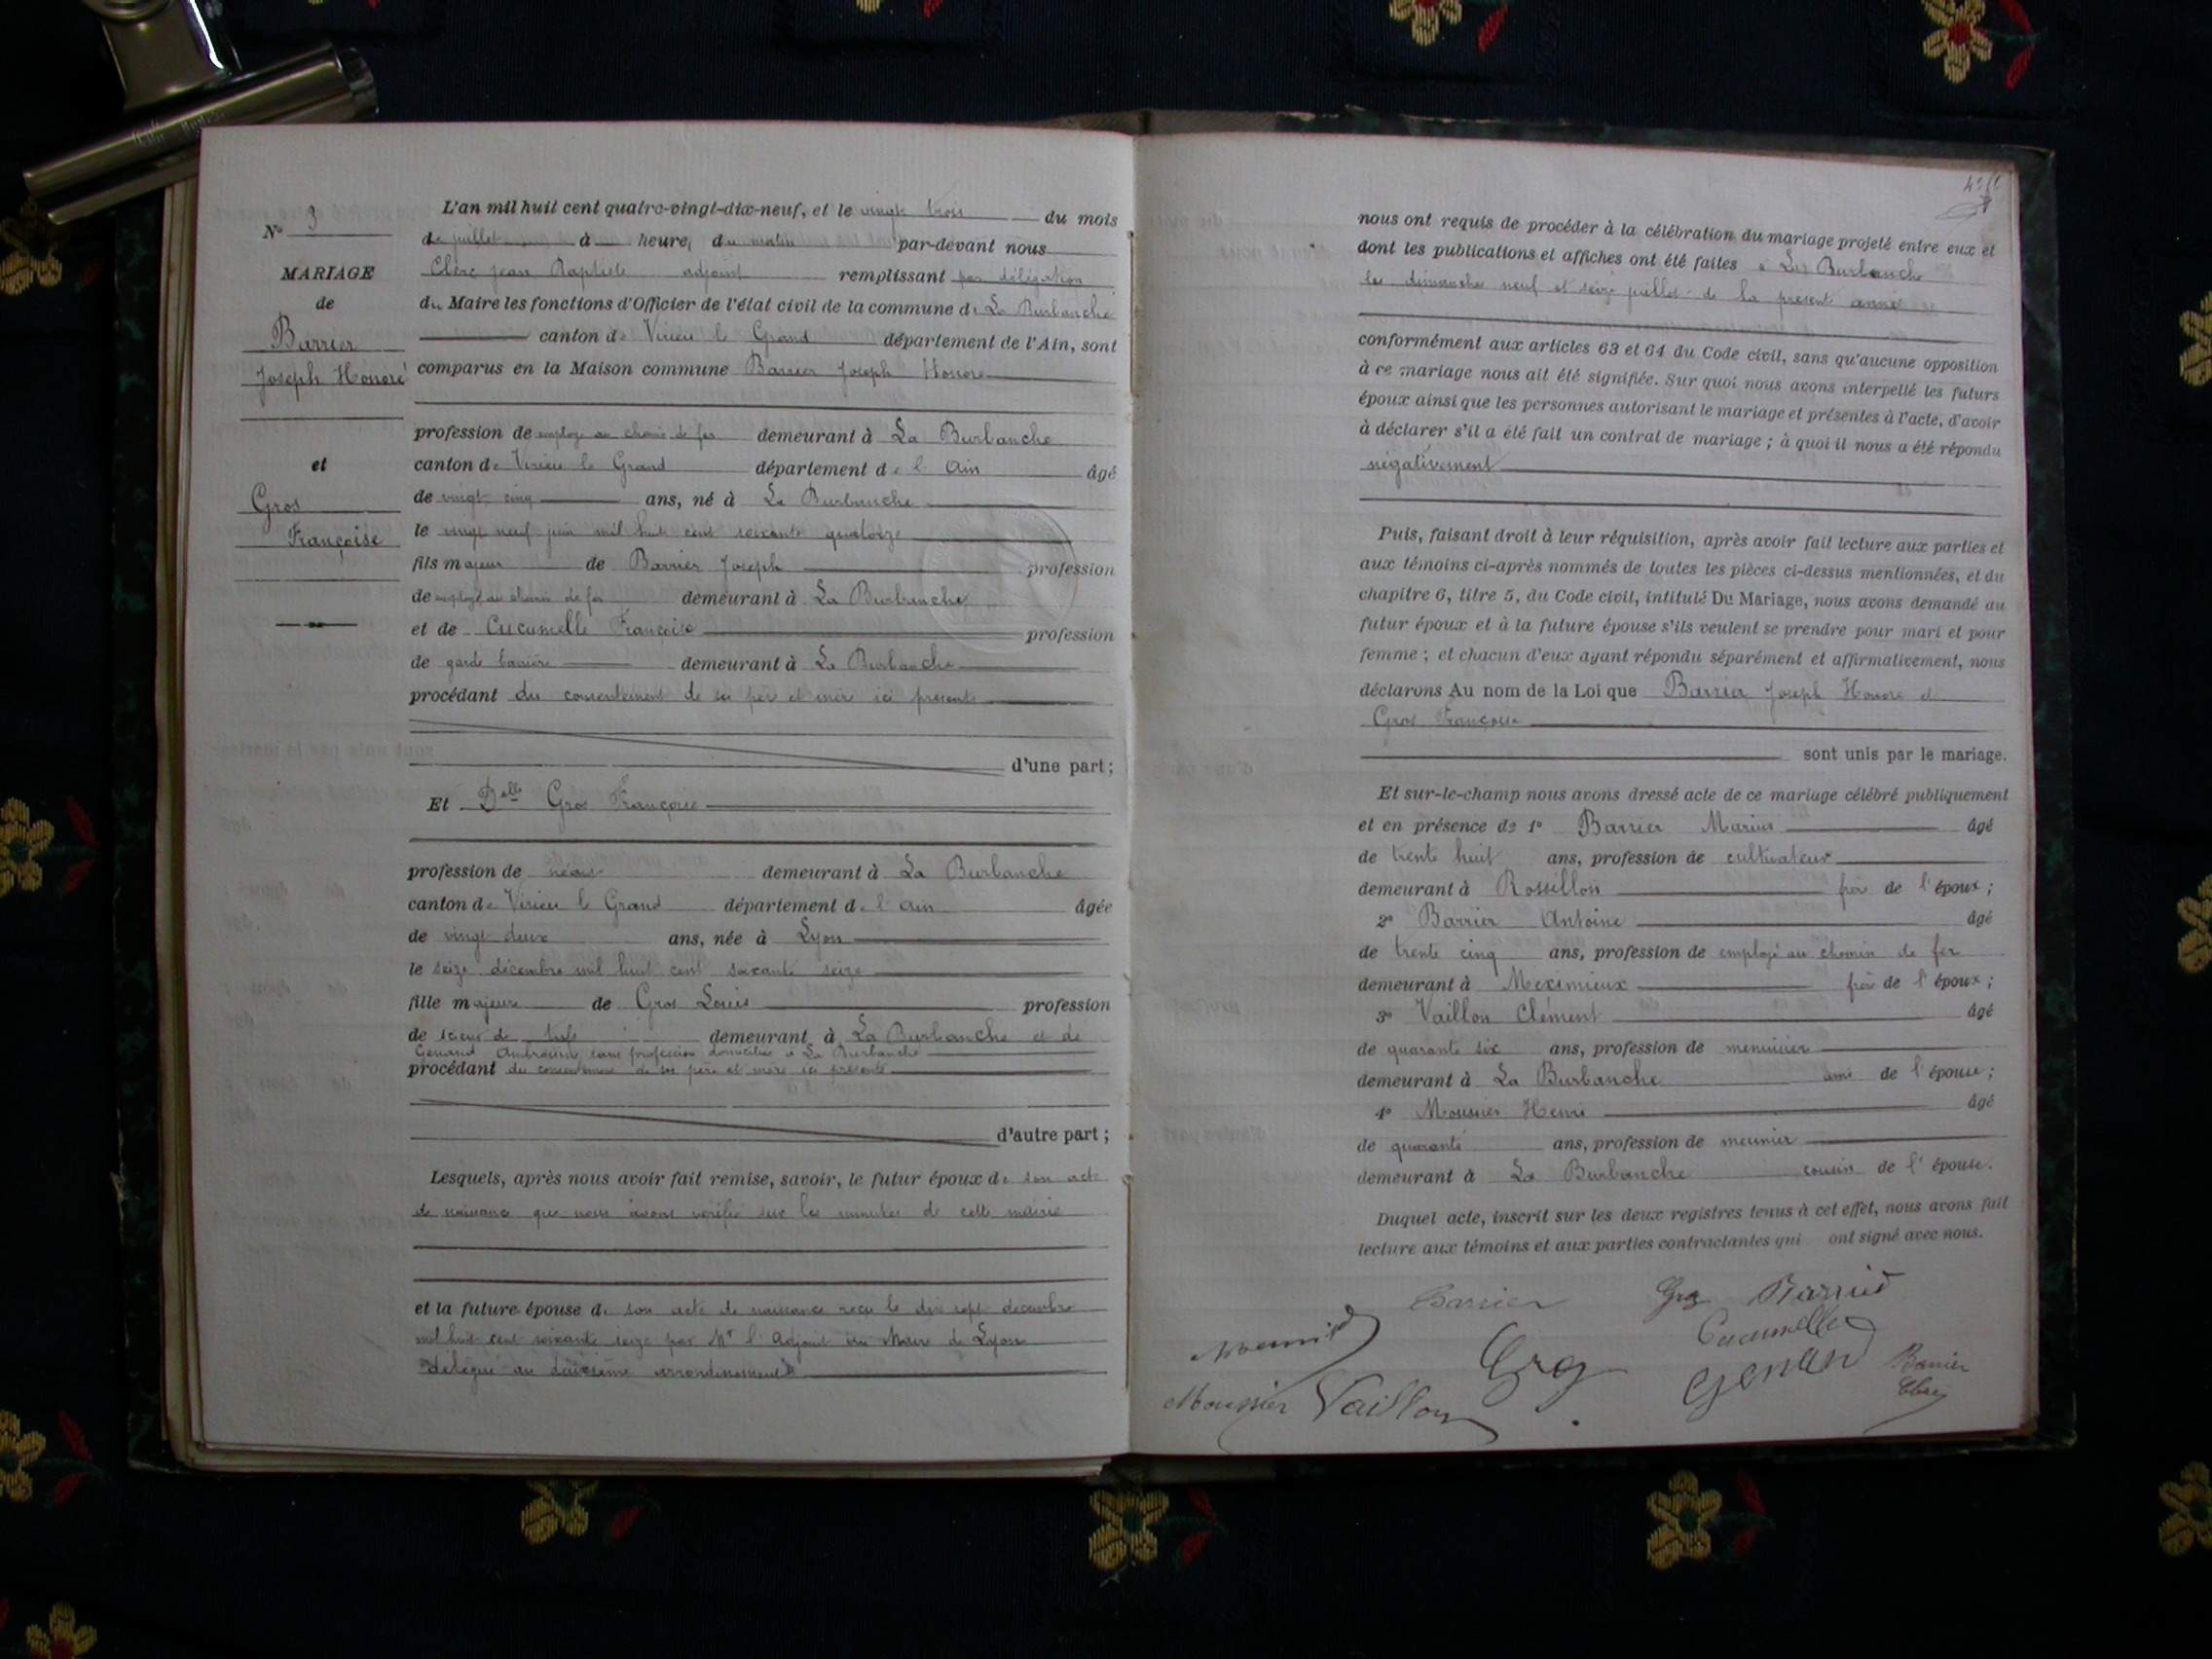 N° 3
MARIAGE
de
Barrier
Joseph Honoré
et
Gros
Françoise
L'an mil huit cent quatre-vingt-dix-neuf, et le vingt trois du mois
de juillet à heure, du matin par-devant nous
Clerc jean Baptiste adjoint remplissant par délégation
du Maire les fonctions d'Officier de l'état civil de la commune de La Burbanche
canton de Virieu le Grand département de l'Ain, sont
comparus en la Maison commune Barrier Joseph Honoré
profession de employé au chemin de fer demeurant à La Burbanche
canton de Virieu le Grand département de l'Ain âgé
de vingt cinq ans, né à La Burbanche
le vingt neuf juin mil huit cent soixante quatorze
fils majeur de Barrier Joseph profession
de employé au chemin de fer demeurant à La Burbanche
et de Cucumelle Françoise profession
de garde barrière demeurant à La Burbanche
procédant du consentement de ses père et mère ici présents
d'une part;
Et Delle Gros Françoise
profession de néant demeurant à La Burbanche
canton de Virieu le Grand département de l'Ain âgée
de vingt deux ans, née à Lyon
le seize décembre mil huit cent soixante seize
fille majeure de Gros Louis profession
de scieur de demeurant à La Burbanche et de
sans profession domiciliée à La Burbanche
procédant du consentement de ses père et mère ici présents
d'autre part;
Lesquels, après nous avoir fait remise, savoir, le futur époux de son acte
de naissance que nous avons vérifié sur les minutes de cette mairie
et la future épouse de son acte de naissance reçu le dix sept décembre
mil huit cent soixante seize par Mr l'Adjoint au Maire de Lyon
délégué au deuxième arrondissement
nous ont requis de procéder à la célébration du mariage projeté entre eux et
dont les publications et affiches ont été faites à La Burbanche
les dimanches neuf et seize juillet de la present année
conformément aux articles 63 et 64 du Code civil, sans qu'aucune opposition
à ce mariage nous ait été signifiée. Sur quoi nous avons interpellé les futurs
époux ainsi que les personnes autorisant le mariage et présentes à l'acte, d'avoir
à déclarer s'il a été fait un contrat de mariage; à quoi il nous a été répondu
négativement
Puis, faisant droit à leur réquisition, après avoir fait lecture aux parties et
aux témoins ci-après nommés de toutes les pièces ci-dessus mentionnées, et du
chapitre 6, titre 5, du Code civil, intitulé Du Mariage, nous avons demandé au
futur époux et à la future épouse s'ils veulent se prendre pour mari et pour
femme; et chacun d'eux ayant répondu séparément et affirmativement, nous
déclarons Au nom de la Loi que Barrier Joseph Honoré et
Gros Françoise
sont unis par le mariage.
Et sur-le-champ nous avons dressé acte de ce mariage célébré publiquement
et en présence de 1° Barrier Marius âgé
de trente huit ans, profession de cultivateur
demeurant à Rossillon frère de l'époux;
2° Barrier Antoine âgé
de trente cinq ans, profession de employé au chemin de fer
demeurant à Meximieux frère de l'époux;
3° Vaillon Clément âgé
de quarante six ans, profession de menuisier
demeurant à La Burbanche ami de l'épouse;
4° Mousnier Henri âgé
de quarante ans, profession de meunier
demeurant à La Burbanche cousin de l'épouse.
Duquel acte, inscrit sur les deux registres tenus à cet effet, nous avons fait
lecture aux témoins et aux parties contractantes qui ont signé avec nous.
Barrier Gros Barrier
Cucumelle
Gros Barrier
Mousnier Vaillon Clerc